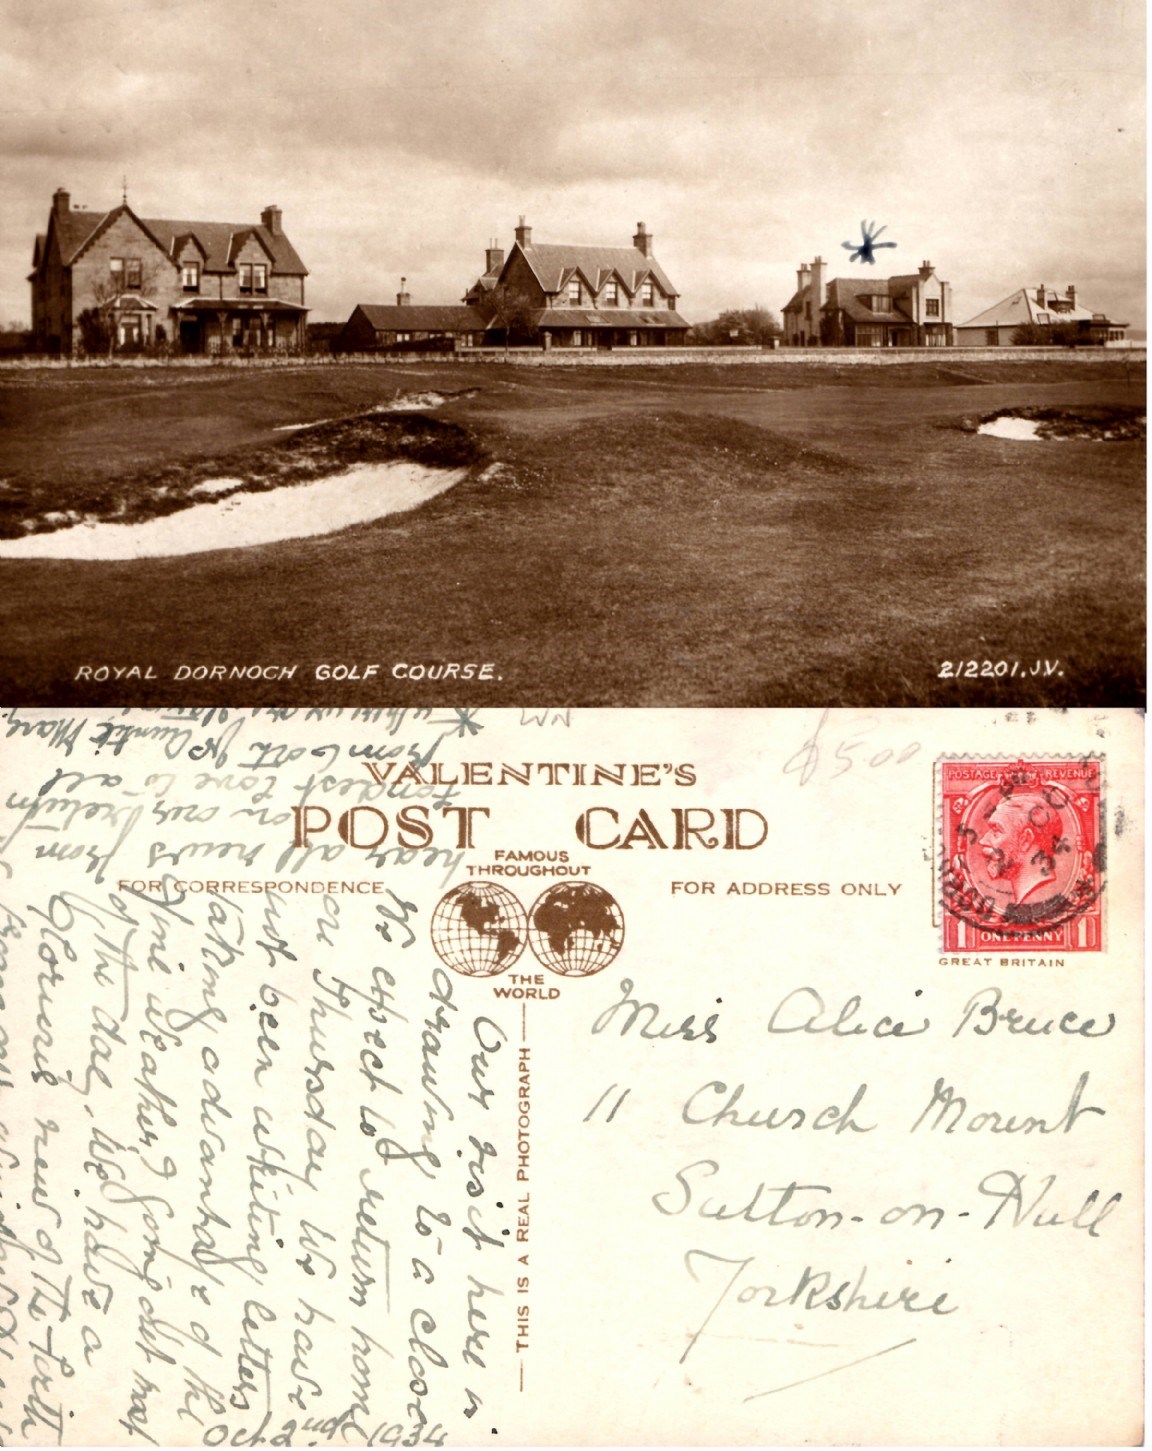 ROYAL DORNOCH GOLF COURSE.
212201.J.V.
VALENTINE'S
POST CARD
FAMOUS
THROUGHOUT
THE
WORLD
FOR CORRESPONDENCE
FOR ADDRESS ONLY
THIS IS A REAL PHOTOGRAPH
$5.00
POSTAGE REVENUE
1 ONE PENNY 1
GREAT BRITAIN
Miss Alice Bruce
11 Church Mount
Sutton-on-Hull
Yorkshire
Oct 2 1934
Our visit here is
drawing to a close
We expect to return home
on Thursday We have
not been writing letters
taking advantage of the
fine weather & going out most
of the day. We have a
Glorious view of the Firth
from our
hear all news from
on our return
fondest love to all
from both Auntie Mary